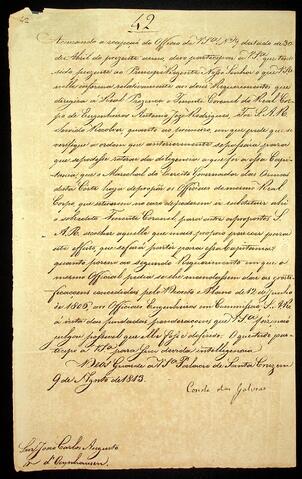 42
42
Acusando a recepção do Officio de V.Sª Nº 9 datado de 30
de Abril do prezente anno, devo participar a V.Sª que tendo
sido prezente ao Principe Regente Nosso Senhor o que V.Sª
informa relativamente aos dous Requerimentos que
dirigira á Real Prezença o Tenente Coronel do Real Cor-
po de Engenheiros Antonio Joze Rodrigues, Foi S.A.R.
Servido Resolver, quanto ao primeiro, em que pede que se
verifique a ordem que anteriormente se
para retirar da diligencia a que foi a essa Capi-
tania, que o Marechal do Exercito Governador das Armas
desta Corte haja de propôr os Officiaes do mesmo Real
Corpo que estiverem no caso de poderem ir substituir ahi
o sobredito Tenente Coronel, para entre
A.R. escolher aquelle que mais proprio parecer para
este effeito, que se fará partir para essa Capitania:
quanto porém ao segundo Requerimento em que o
mesmo Official pedia se lhe mandassem dar as grati-
ficaçoens concedidas pelo Decreto e Plano de 12 de Junho
de 1806, aos Officiaes Engenheiros em Commissão, S.A.R.
á vista das fundadas ponderaçoens que V.Sª fez, não
julgou possivel que lhe fosse deferido. O que tudo par-
ticipo a V.Sª para sua devida intelligencia.
Deos Guarde a V.Sª Palacio de Santa Cruz em
9 de Agosto de 1813.
Conde das Galveas
Snr. João Carlos Augusto
d'Oeynhausen.